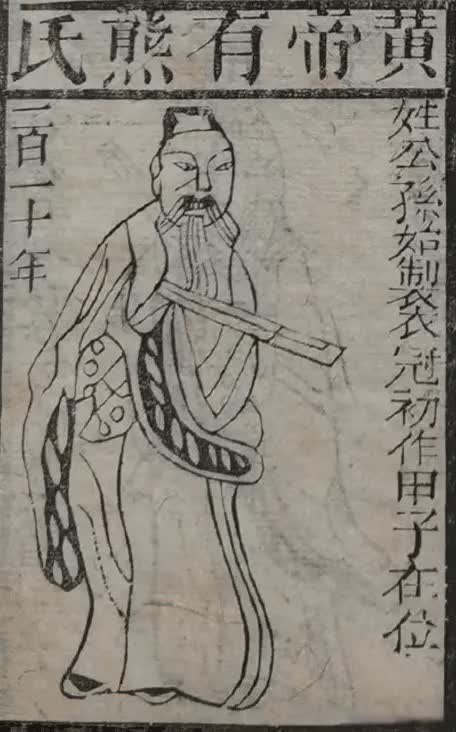 黄帝有熊氏
姓公孫始製衣冠初作甲子在位
二百一十年